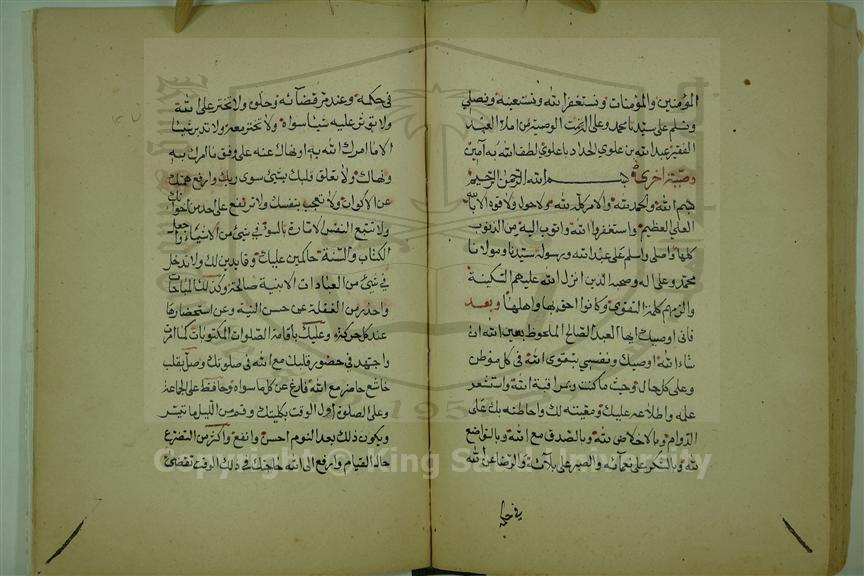 المؤمنين والمؤمنات ونستغفر الله ونستعينه ونصلي
ونسلم على سيدنا محمد وعلى الوصية من املاء العبد
الفقير عبد الله بن علوي الحداد باعلوي لطف الله به آمين
وصية اخرى بسم الله الرحمن الرحيم
بسم الله والحمد لله والامر كله لله ولا حول ولا قوة الا بالله
العلي العظيم واستغفر الله واتوب اليه من الذنوب
كلها واصلى واسلم على عبد الله ورسوله سيدنا ومولانا
محمد وعلى اله وصحبه الذين انزل الله عليهم السكينة
والزمهم كلمة التقوى وكانوا احق بها واهلها وبعد
فانى اوصيك ايها العبد الصالح الملحوظ بعين الله ان
شاء الله اوصيك ونفسي بتقوى الله في كل موطن
وعلى كل حال وحيث ما كنت وبمراقبة الله واستشعر
علمه واطلاعه عليك ومعيته لك واحاطته بك على
الدوام وبالاخلاص لله وبالصدق مع الله وبالتواضع
لله وبالشكر على نعمائه والصبر على بلآئه والرضا عن الله
في حكمه
في حكمه وعند مر قضآئه وحلوه ولا تختر على الله
ولا تؤثر عليه شيئا سواه ولا تختر معه ولا تدبر شيئا
الا ما امرك الله به او نهاك عنه على وفق ما امرك به
ونهاك ولا تعلق قلبك بشئ سوى ربك وارفع همتك
عن الاكوان ولا تعجب بنفسك ولا ترتفع على احد من اخوانك
ولا تتبع النفس الامارة بالسوء في شئ من الاشياء واجعل
الكتاب والسنة حاكمين عليك وقايدين لك ولا تدخل
في شئ من العبادات الا بنية صالحة وكذلك المباحات
واحذر من الغفلة عن حسن النية وعن استحضارها
عند كل حركة وعليك باقامة الصلوات المكتوبات كما امر
واجتهد في حضور قلبك مع الله في صلوتك وصل بقلب
خاشع حاضر مع الله فارغ عن كل ما سواه وحافظ على الجماعة
وعلى الصلوة اول الوقت بكليتك وقم من الليل ما تيسر
ويكون ذلك بعد النوم احسن وانفع واكثر من التضرع
حالة القيام وارفع الى الله حاجتك في ذلك الوقت تقضى
Copyright © King Saud University
1957